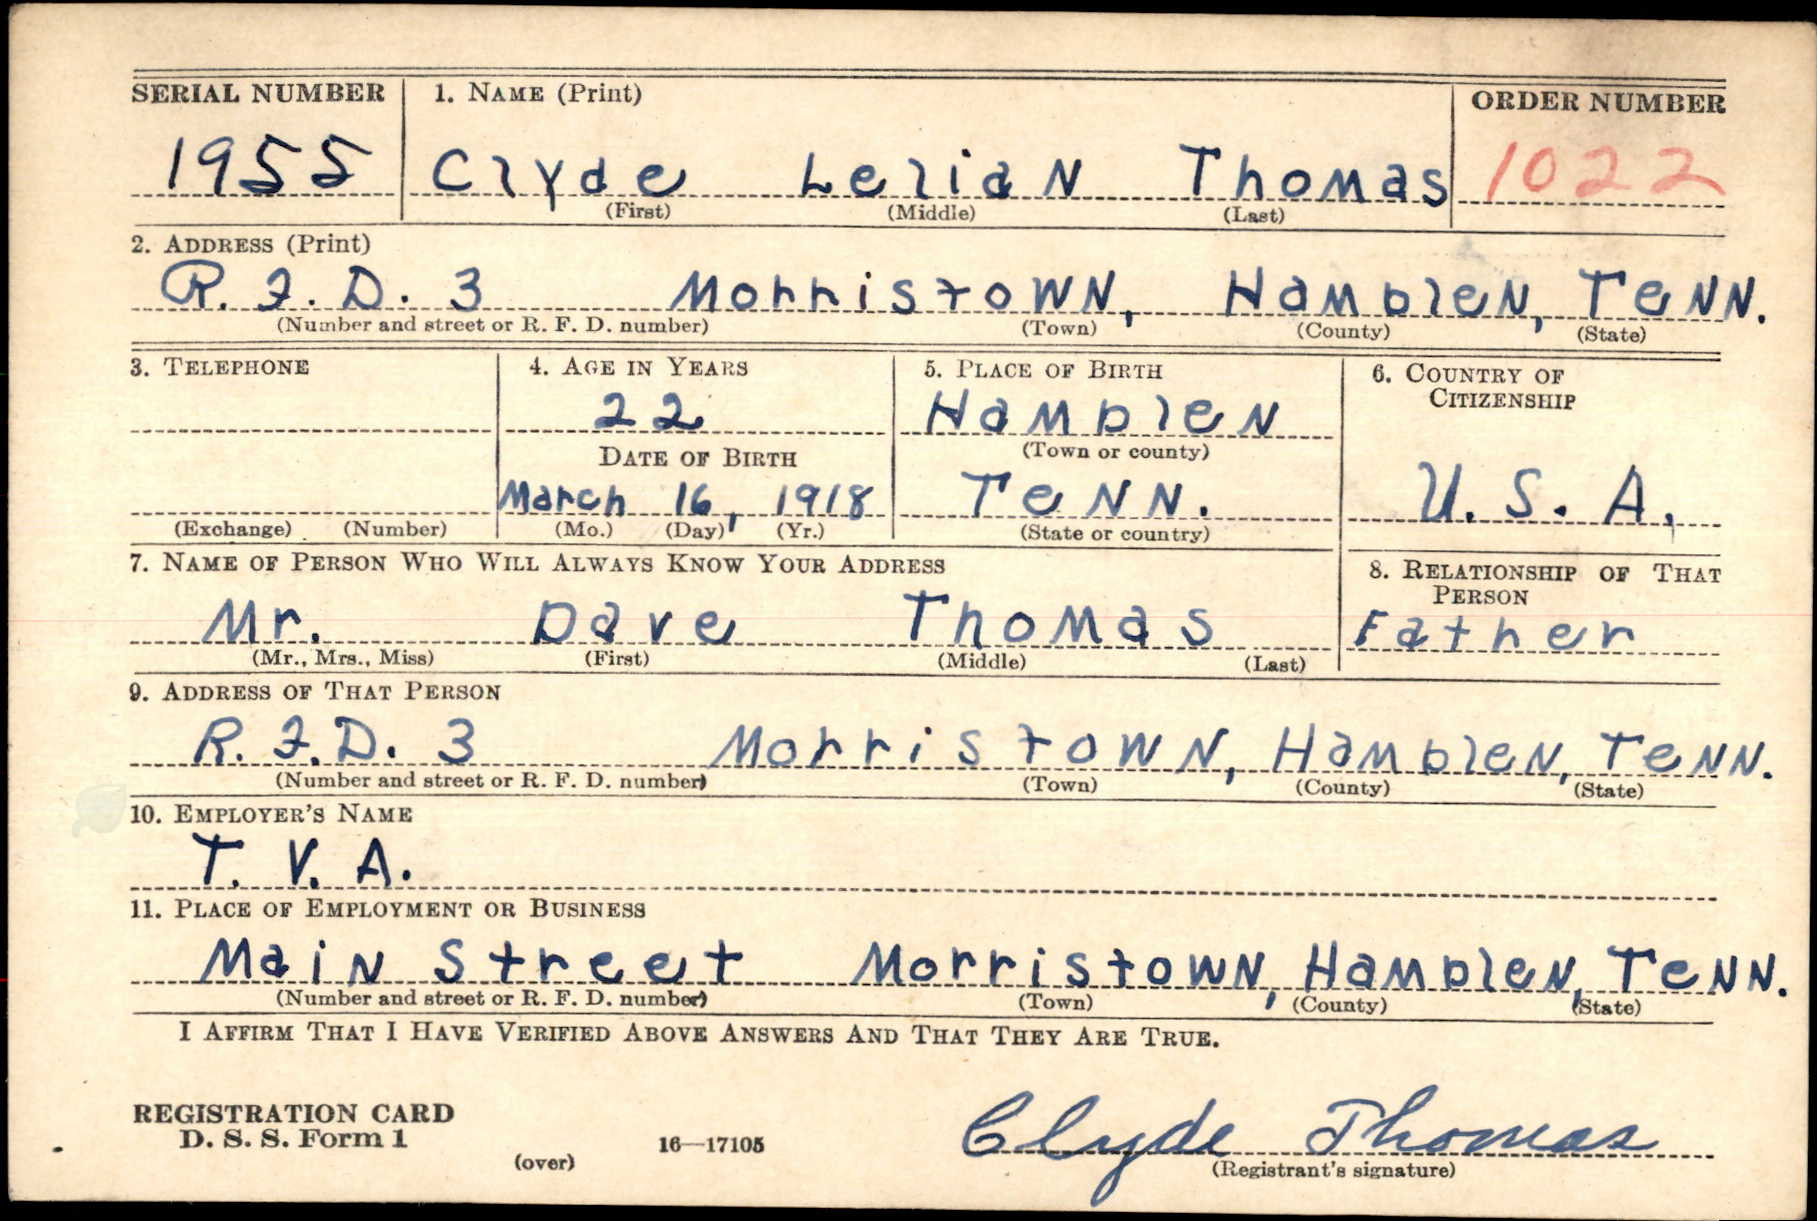 SERIAL NUMBER 1. NAME (Print) ORDER NUMBER
1955 Clyde Lelian Thomas 1022
(First) (Middle) (Last)
2. ADDRESS (Print)
R. F. D. 3 Morristown, Hamblen, Tenn.
(Number and street or R. F. D. number) (Town) (County) (State)
3. TELEPHONE 4. AGE IN YEARS 5. PLACE OF BIRTH 6. COUNTRY OF
CITIZENSHIP
22 Hamblen
DATE OF BIRTH (Town or county)
March 16, 1918 Tenn. U. S. A.
(Exchange) (Number) (Mo.) (Day) (Yr.) (State or country)
7. NAME OF PERSON WHO WILL ALWAYS KNOW YOUR ADDRESS 8. RELATIONSHIP OF THAT
PERSON
Mr. Dave Thomas Father
(Mr., Mrs., Miss) (First) (Middle) (Last)
9. ADDRESS OF THAT PERSON
R. F. D. 3 Morristown, Hamblen, Tenn.
(Number and street or R. F. D. number) (Town) (County) (State)
10. EMPLOYER'S NAME
T. V. A.
11. PLACE OF EMPLOYMENT OR BUSINESS
Main Street Morristown, Hamblen, Tenn.
(Number and street or R. F. D. number) (Town) (County) (State)
I AFFIRM THAT I HAVE VERIFIED ABOVE ANSWERS AND THAT THEY ARE TRUE.
REGISTRATION CARD
D. S. S. Form 1 16—17105 Clyde Thomas
(over) (Registrant's signature)